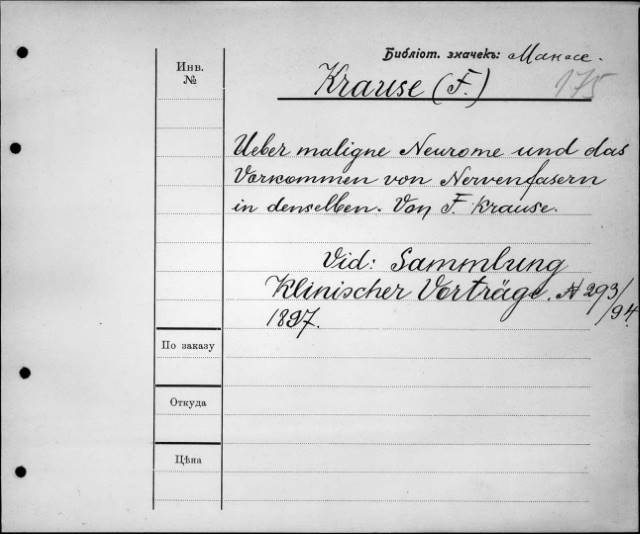 Библіот. значекъ: Макс.
Инв.
№
Krause (F.)
175
Ueber maligne Neurome und das
Vorkommen von Nervenfasern
in denselben. Von F. Krause.
Vid: Sammlung
Klinischer Vorträge. № 293/94.
1897.
По заказу
Откуда
Цѣна